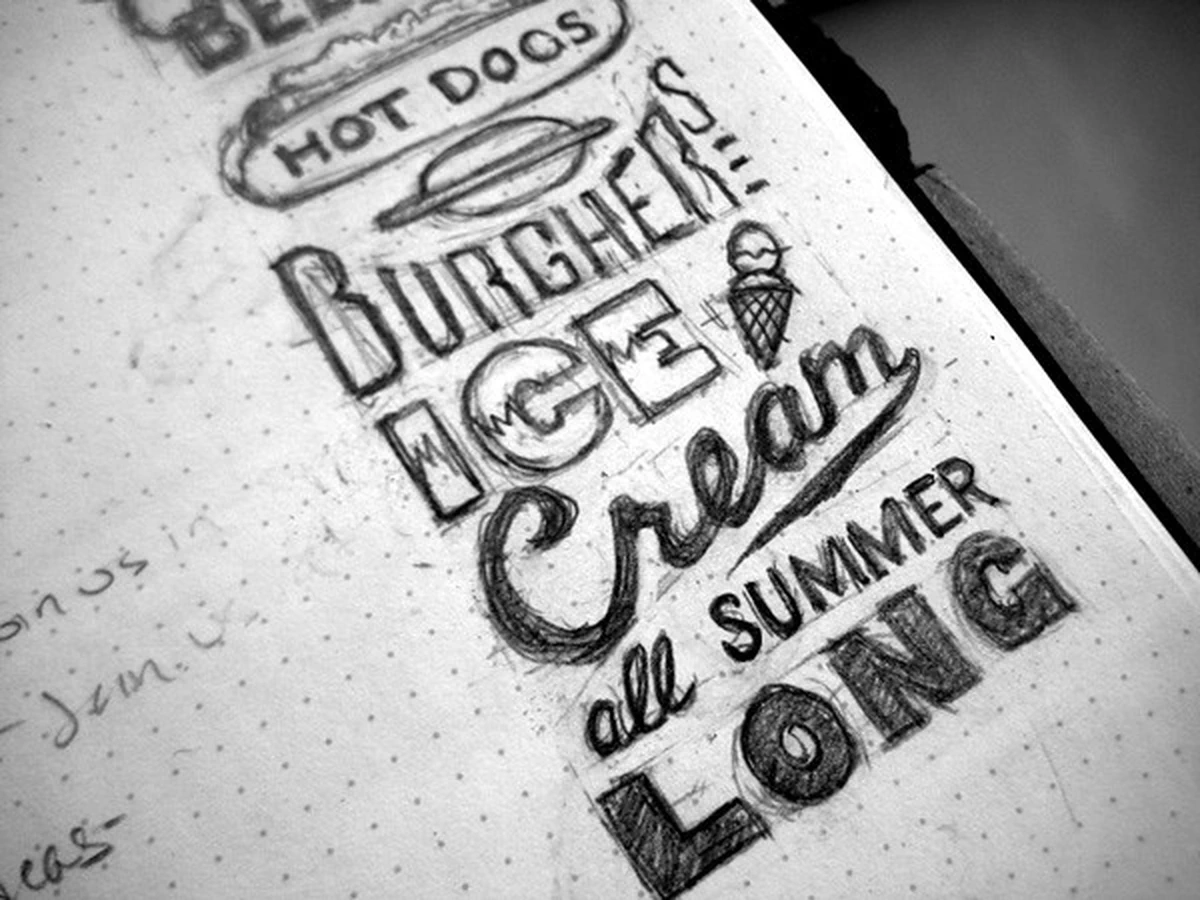 HOT DOGS
BURGHERS
ICE
Cream
all SUMMER
LONG
on us in
Join us